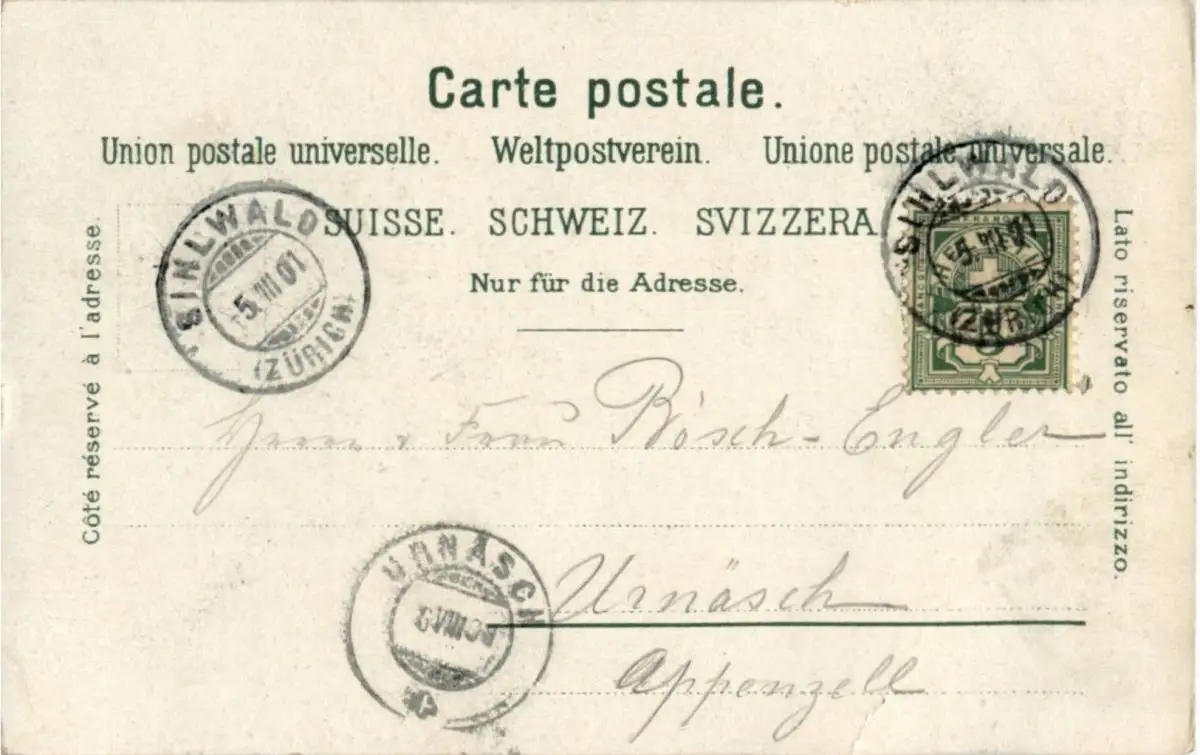 Carte postale.
Union postale universelle. Weltpostverein. Unione postale universale.
SUISSE. SCHWEIZ. SVIZZERA
Nur für die Adresse.
Côté réservé à l'adresse.
Lato riservato all' indirizzo.
SIHLWALD
-5.VIII 01
(ZÜRICH)
SIHLWALD
-5.VIII 01
(ZÜRICH)
Herrn & Frau Bösch-Engler
Urnäsch
Appenzell
URNÄSCH